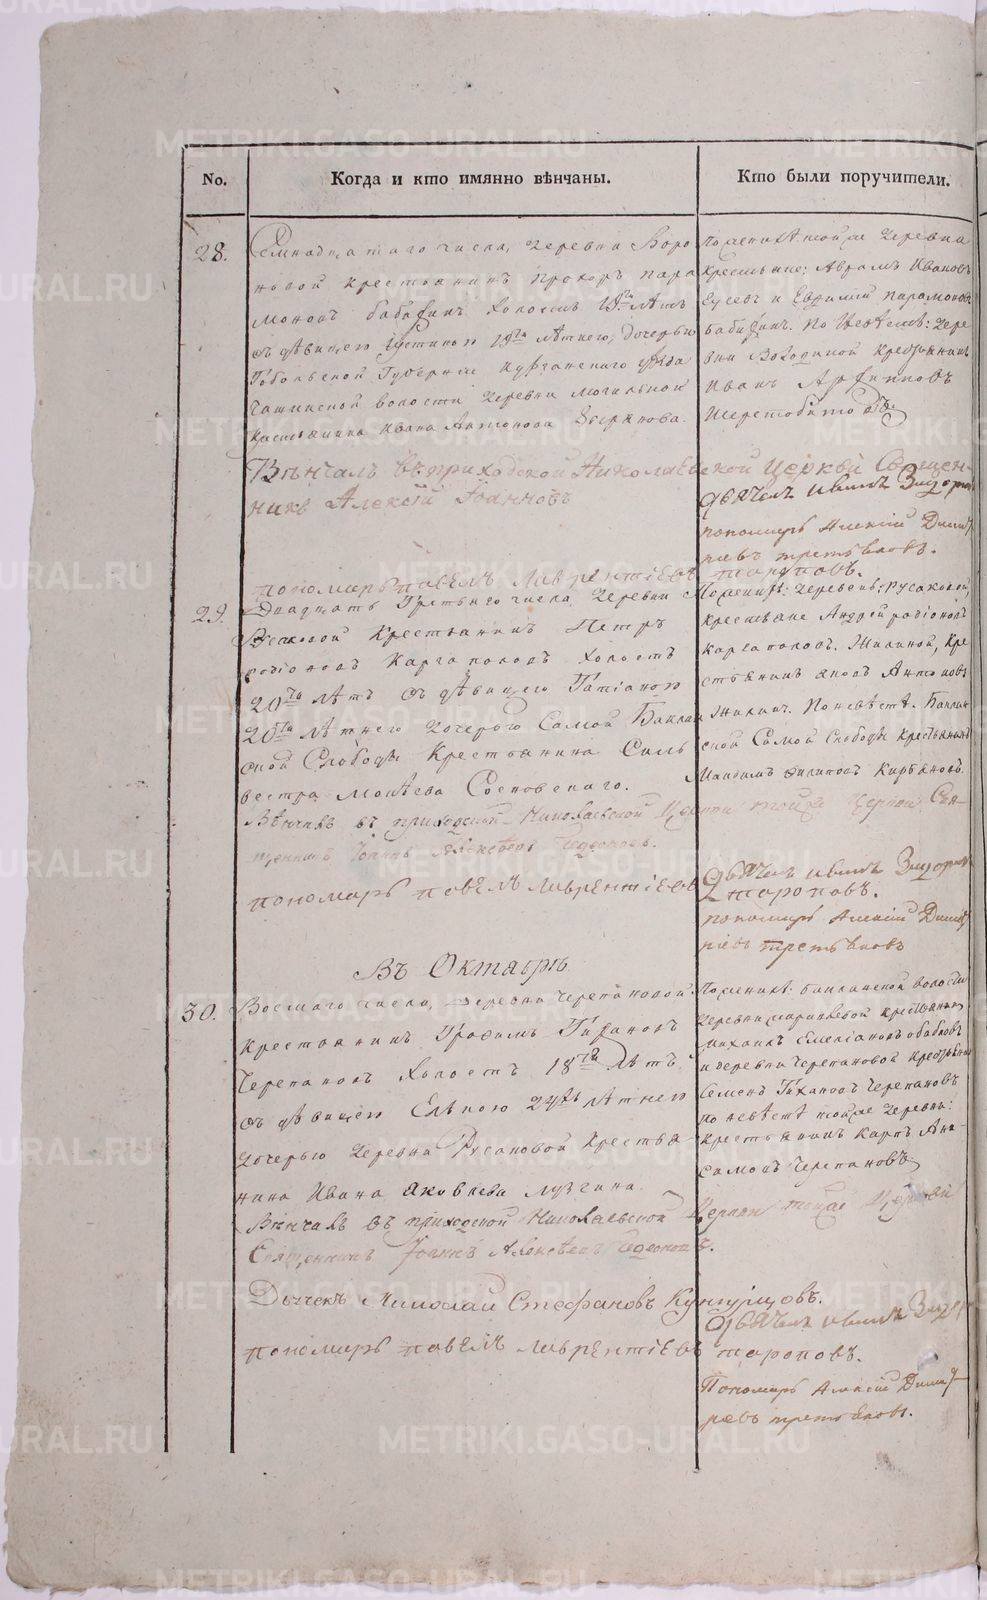 No.
Когда и кто имянно вѣнчаны.
Кто были поручители.
28.
Семнадцатаго числа, деревни Воро
новой крестьянинъ Прохоръ Пара
моновъ Бабикинъ холостъ 19ти лѣтъ
съ дѣвицею Устиньею 19ти лѣтнею, дочерью
Тобольской Губерніи Курганскаго уѣзда
Чашинской волости деревни Могильной
крестьянина Ивана Антонова
Вѣнчалъ въ приходской Николаевской Церкви Священ-
никъ Алексій Іоанновъ
пономарь Павелъ Лаврентіевъ Тороповъ.
По женихѣ тойже деревни
крестьяне: Аврамъ Ивановъ
и Евфимій Парамоновъ
Бабикинъ. По невѣстѣ: дере
вни крестьянинъ
Иванъ Архиповъ
Шерстобитовъ
дьячекъ Иванъ
пономарь Алексій Димит
ріевъ Третьяковъ.
29.
Двадцать Третьяго числа, деревни
Русаковой Крестьянинъ Петръ
родіоновъ Каргаполовъ холостъ
20ти лѣтъ съ дѣвицею Татіаною
20ти лѣтнею дочерью Самой Баклан
ской Слободы Крестьянина Силь
вестра Моисѣева Сосновскаго.
Вѣнчалъ въ приходской Николаевской Церкви тойже церкви Свя-
щенникъ Іоаннъ Алексѣевъ
пономарь Павелъ Лаврентіевъ Тороповъ.
По женихѣ: деревень: Русаковой,
крестьяне Андрей родіоновъ
Каргаполовъ. Жилиной, Кре
стьянинъ Яковъ Антоновъ
Жилинъ. По невѣстѣ. Баклан
ской Самой Слободы Крестьянинъ
Максимъ Филиповъ
дьячекъ Иванъ
пономарь Алексій Димит
ріевъ Третьяковъ
Въ Октябрѣ
30.
Восмаго числа, деревни Черепановой
крестьянинъ Трофимъ Тихановъ
Черепановъ холостъ 18ти лѣтъ
съ дѣвицею Еленою 24хъ лѣтнею
дочерью деревни Русаковой крестья-
нина Ивана Яковлева Лузгина.
Вѣнчалъ въ приходской Николаевской Церкви тойже Церкви
Священникъ Іоаннъ Алексѣевъ
Дьячекъ Николай Стефановъ Кунгурцовъ.
пономарь Павелъ Лаврентіевъ Тороповъ.
По женихѣ: Бакланской волости
деревни крестьянинъ
Михаилъ Емеліановъ
и деревни Черепановой крестьянинъ
Семенъ Тихановъ Черепановъ
по невѣстѣ тойже деревни:
крестьянинъ Карпъ
Черепановъ
дьячекъ Иванъ
Пономарь Алексій Димит
ріевъ Третьяковъ.
METRIKI.GASO-URAL.RU